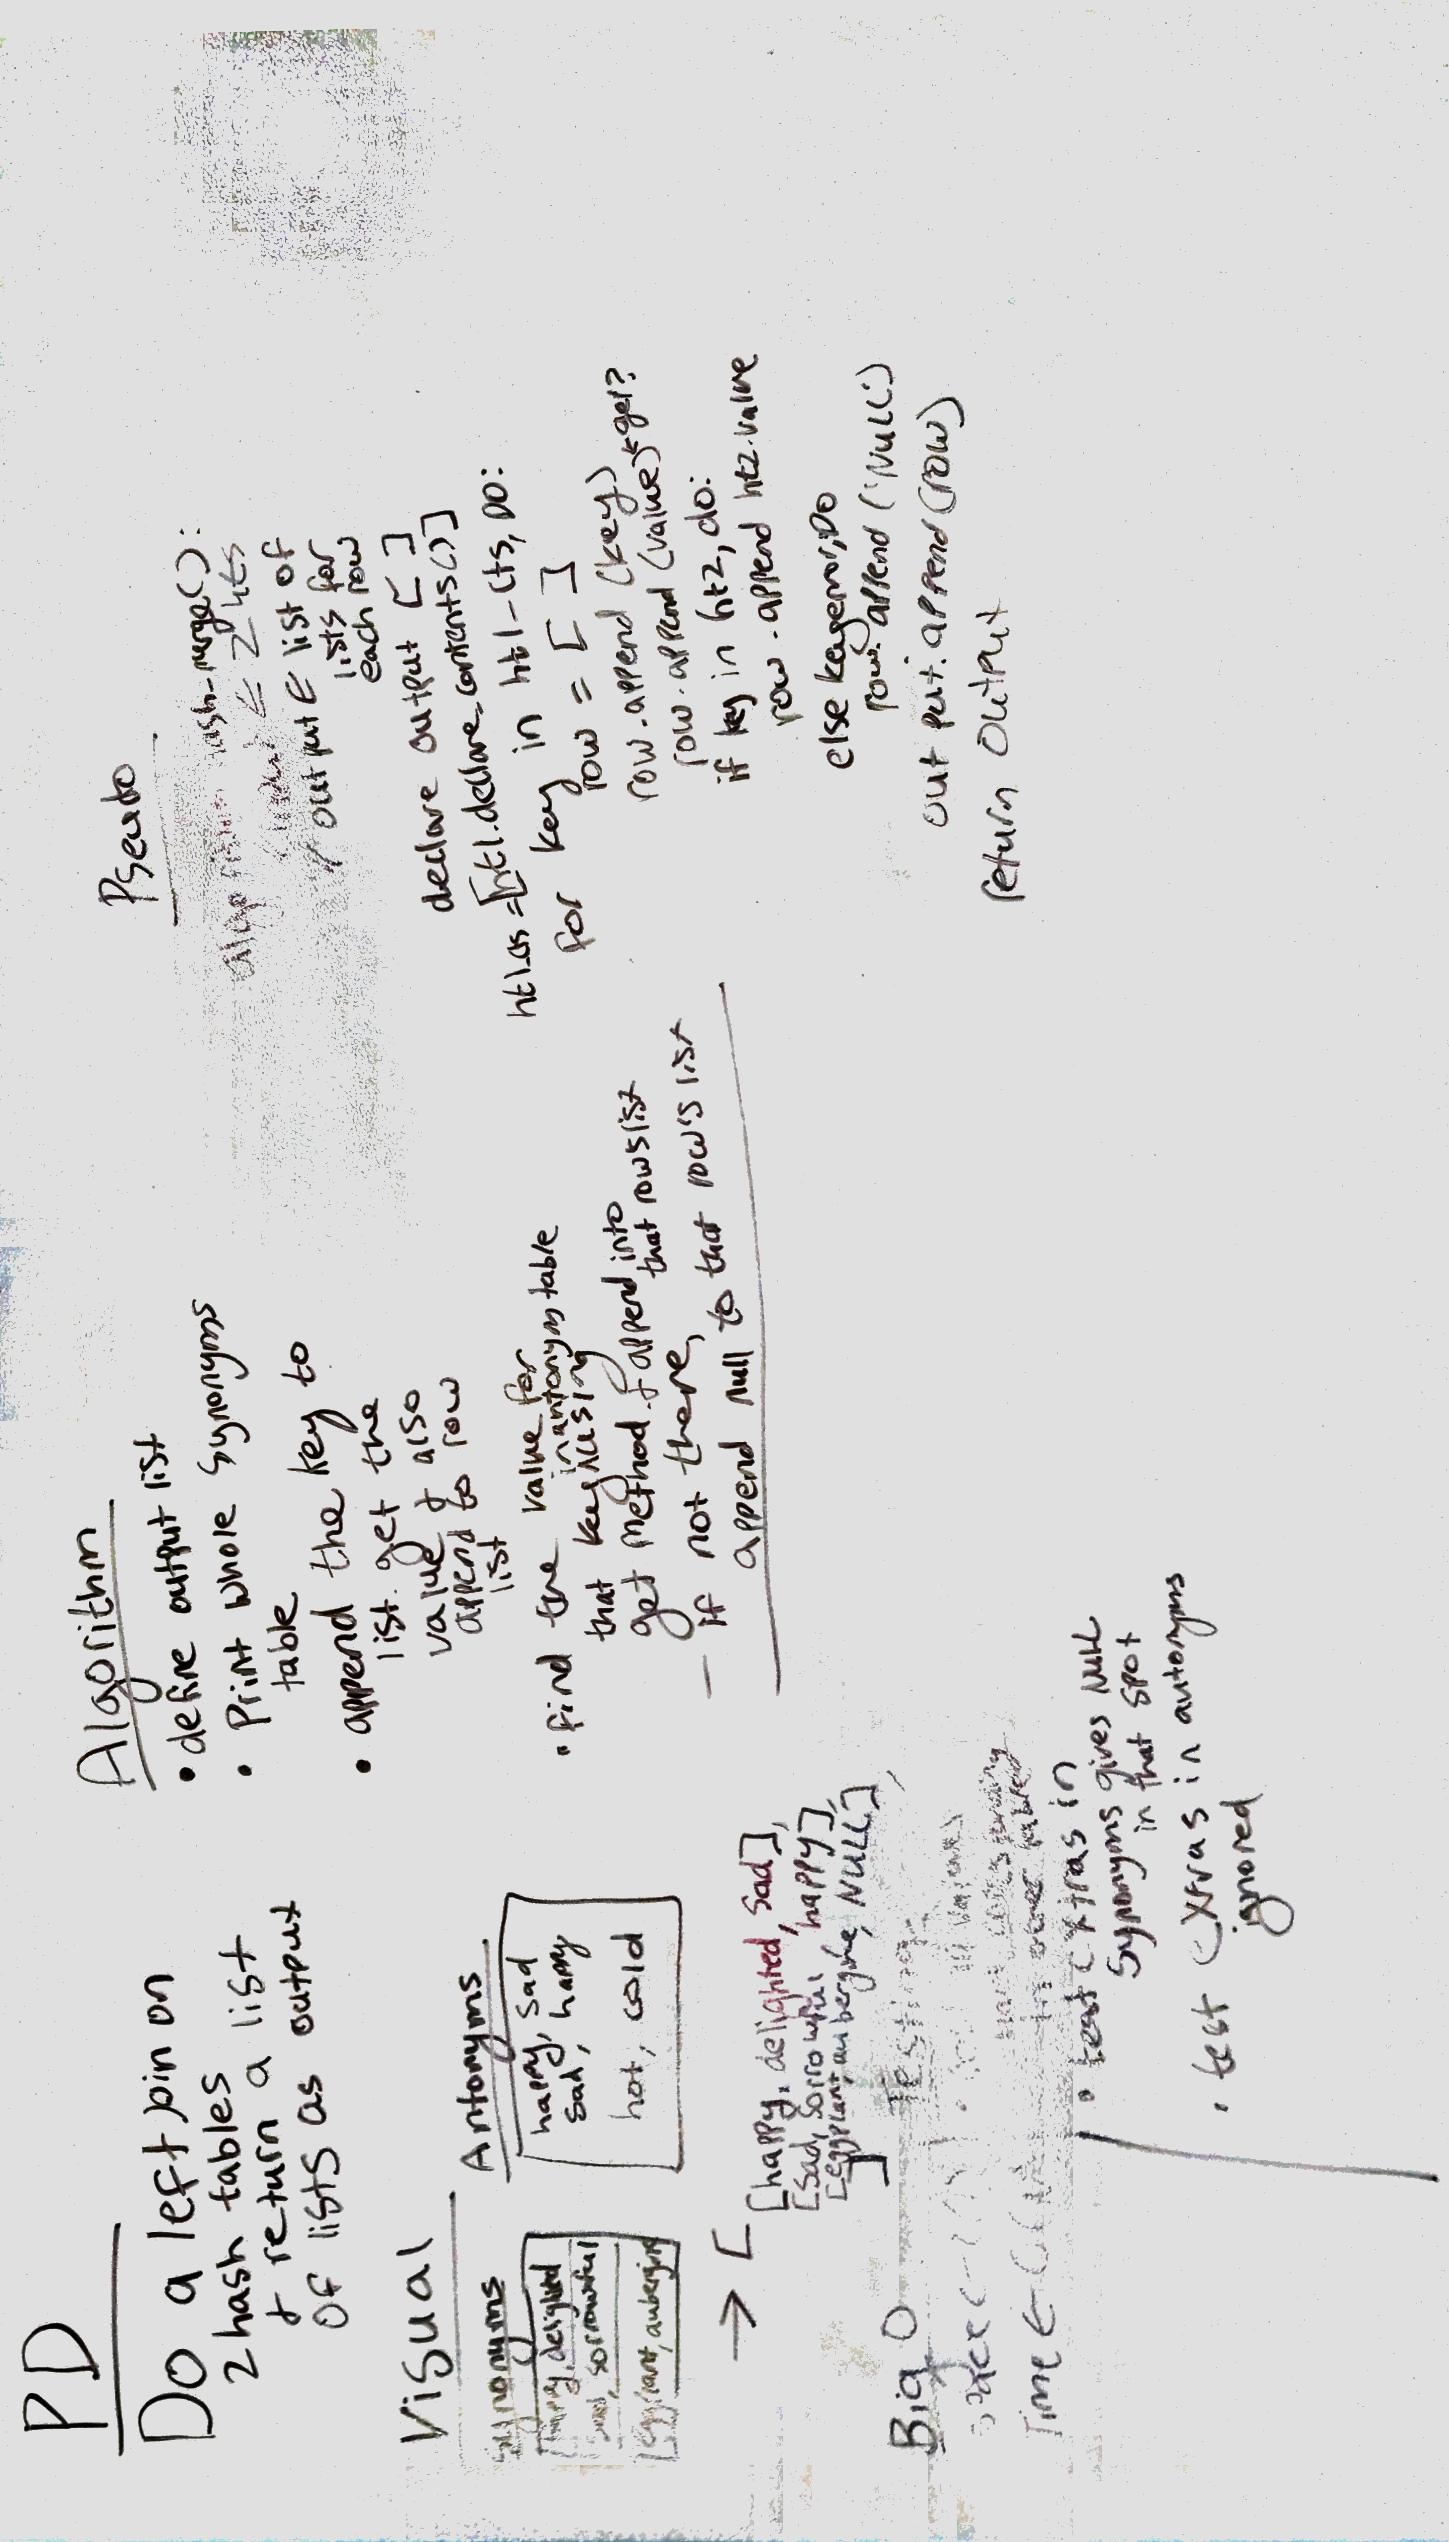 PD
Do a left join on
2 hash tables
& return a list
of lists as output
Visual
Synonyms
happy, delighted
sad, sorrowful
eggplant, aubergine
Antonyms
happy, sad
sad, happy
hot, cold
→ [
[happy, delighted, sad],
[sad, sorrowful, happy],
[eggplant, aubergine, NULL],
]
Big O
space ←
Time ←
Testing
• test extras in
synonyms gives NULL
in that spot
• test extras in antonyms
ignored
Algorithm
• define output list
• Print whole synonyms
table
• append the key to
list. get the
value & also
append to row
list
• find the value for
that key in antonym table
using
get method & append into
that rows list
– if not there,
append null to that row's list
Pseudo
algorithm hash_merge():
← 2 hts
output ← list of
lists for
each row
declare output [ ]
ht1_cts = [ht1.declare_contents()]
for key in ht1-cts, DO:
row = [ ]
row.append (key)
row.append (value) ← get?
if key in ht2, do:
row.append ht2.value
else keyerror, DO
row.append ('NULL')
output.append (row)
return output